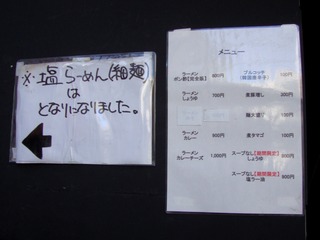 ※塩らーめん(細麺)
は
となりになりました。
メニュー
ラーメン
ポン酢【完全版】 800円
ラーメン
しょうゆ 700円
ラーメン
カレー 900円
ラーメン
カレーチーズ 1,000円
プルコッチ
麺大盛り
煮タマゴ 100円
スープなし【期間限定】
しょうゆ
スープなし【期間限定】
塩ラー油 600円